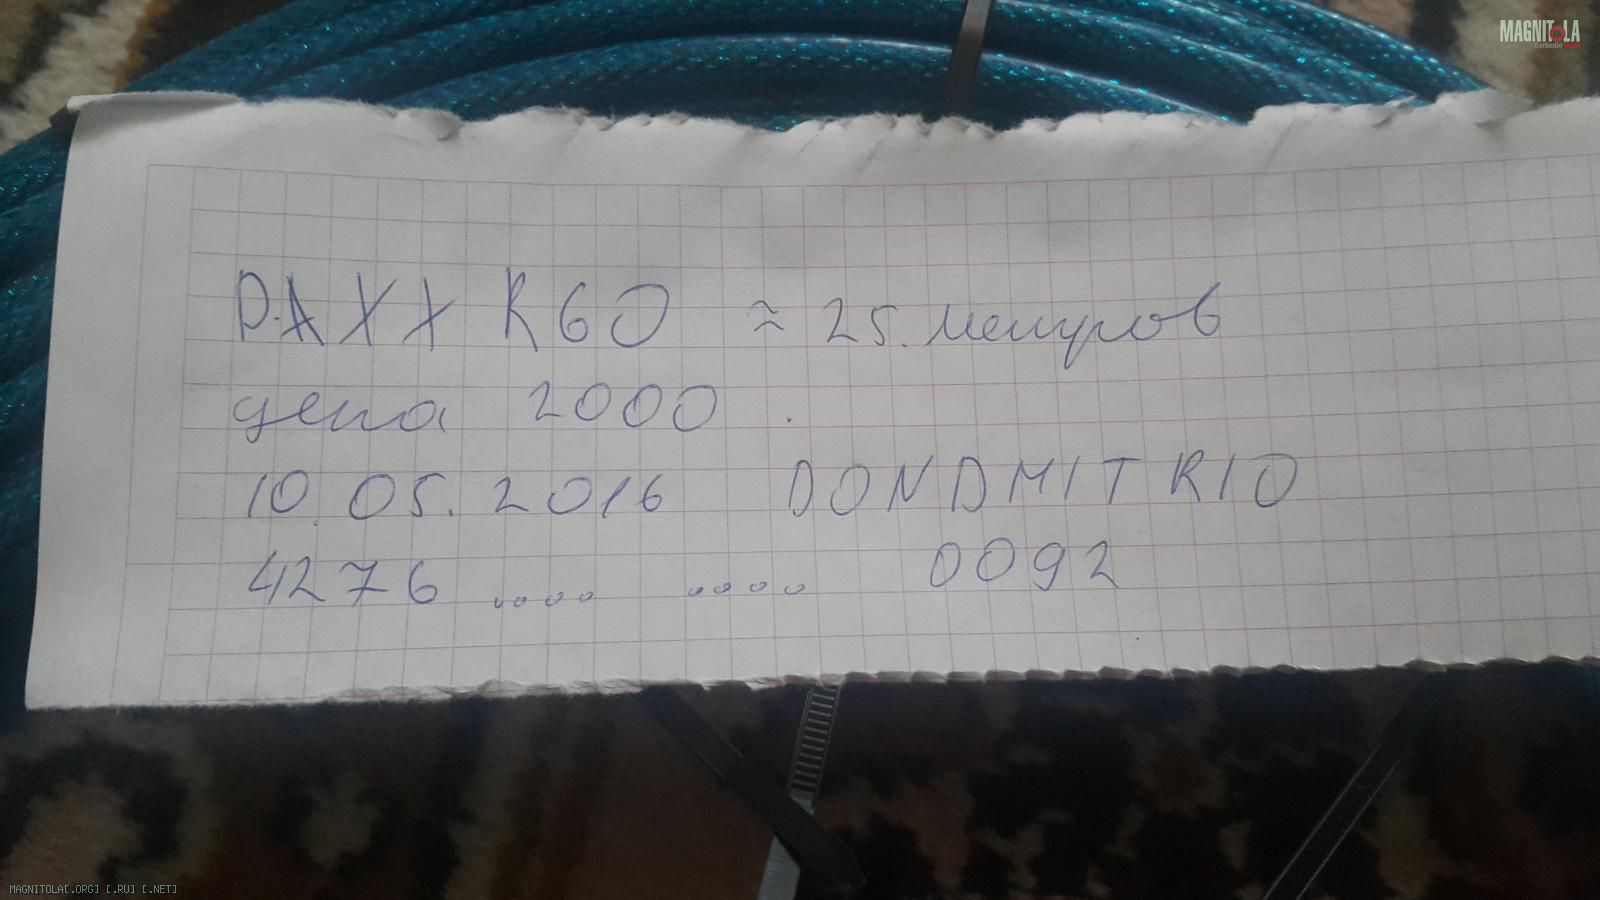 MAGNITOLA
CarAudio
DAXX R60 ≈ 25. метров
цена 2000.
10.05.2016 DONDMITRIO
4276 .... .... 0092
MAGNITOLA[.ORG] [.RU] [.NET]